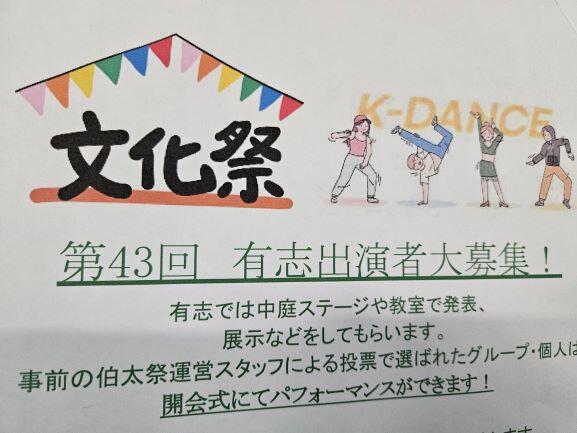 文化祭
K-DANCE
第43回 有志出演者大募集！
有志では中庭ステージや教室で発表、
展示などをしてもらいます。
事前の伯太祭運営スタッフによる投票で選ばれたグループ・個人は
開会式にてパフォーマンスができます！